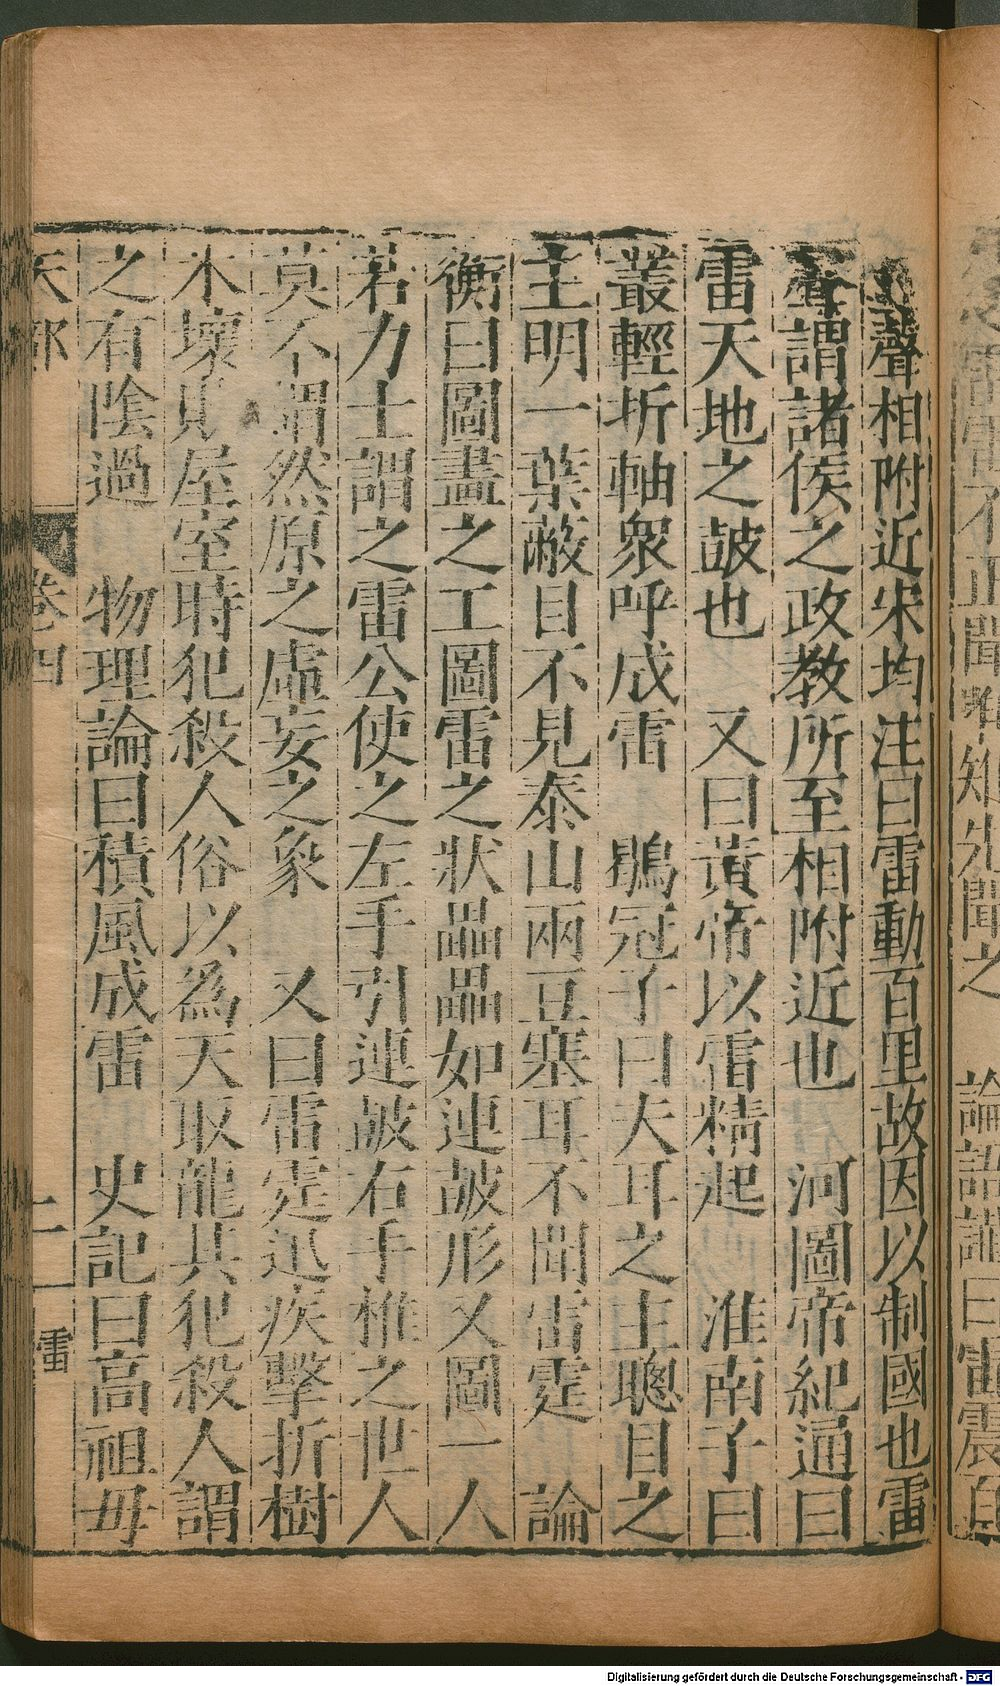 聲相附近宋均注曰雷動百里故因以制國也雷
聲謂諸侯之政教所至相附近也　河圖帝紀通曰
雷天地之皷也　又曰黃帝以雷精起　淮南子曰
叢輕折軸衆呼成雷　鶡冠子曰夫耳之主聰目之
主明一葉蔽目不見泰山兩豆塞耳不聞雷霆　論
衡曰圖畫之工圖雷之狀畾畾如連皷形又圖一人
若力士謂之雷公使之左手引連皷右手椎之世人
莫不謂然原之虛妄之象　又曰雷霆迅疾擊折樹
木壞敗屋室時犯殺人俗以為天取龍其犯殺人謂
之有陰過　物理論曰積風成雷　史記曰高祖母
天部　卷四　二　雷
雷電不正聞　知先聞之　論語讖曰雷震
Digitalisierung gefördert durch die Deutsche Forschungsgemeinschaft - DFG